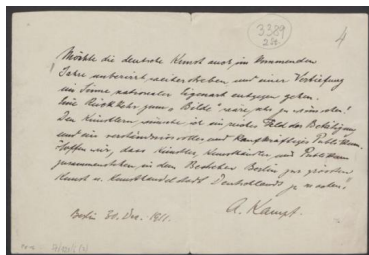 3389
4
Möchte die deutsche Kunst auch im kommenden
Jahre unbeirrt weiterstreben und einer Vertiefung
im Sinne nationaler Eigenart entgegen gehen.
Eine Rückkehr zum „Bilde" wäre, als zu wünschen!
Den Künstlern wünsche ich ein reiches Feld der Betätigung
und ein verständnisvolles und kaufkräftiges Publikum.
Hoffen wir, dass Künstler, Kunsthändler und Publikum
zusammenstehen, in dem Bestreben Berlin zur grössten
Kunst u. Kunsthandelsstadt Deutschlands zu
Berlin 30. Dez. 1911.
A. Kampf.